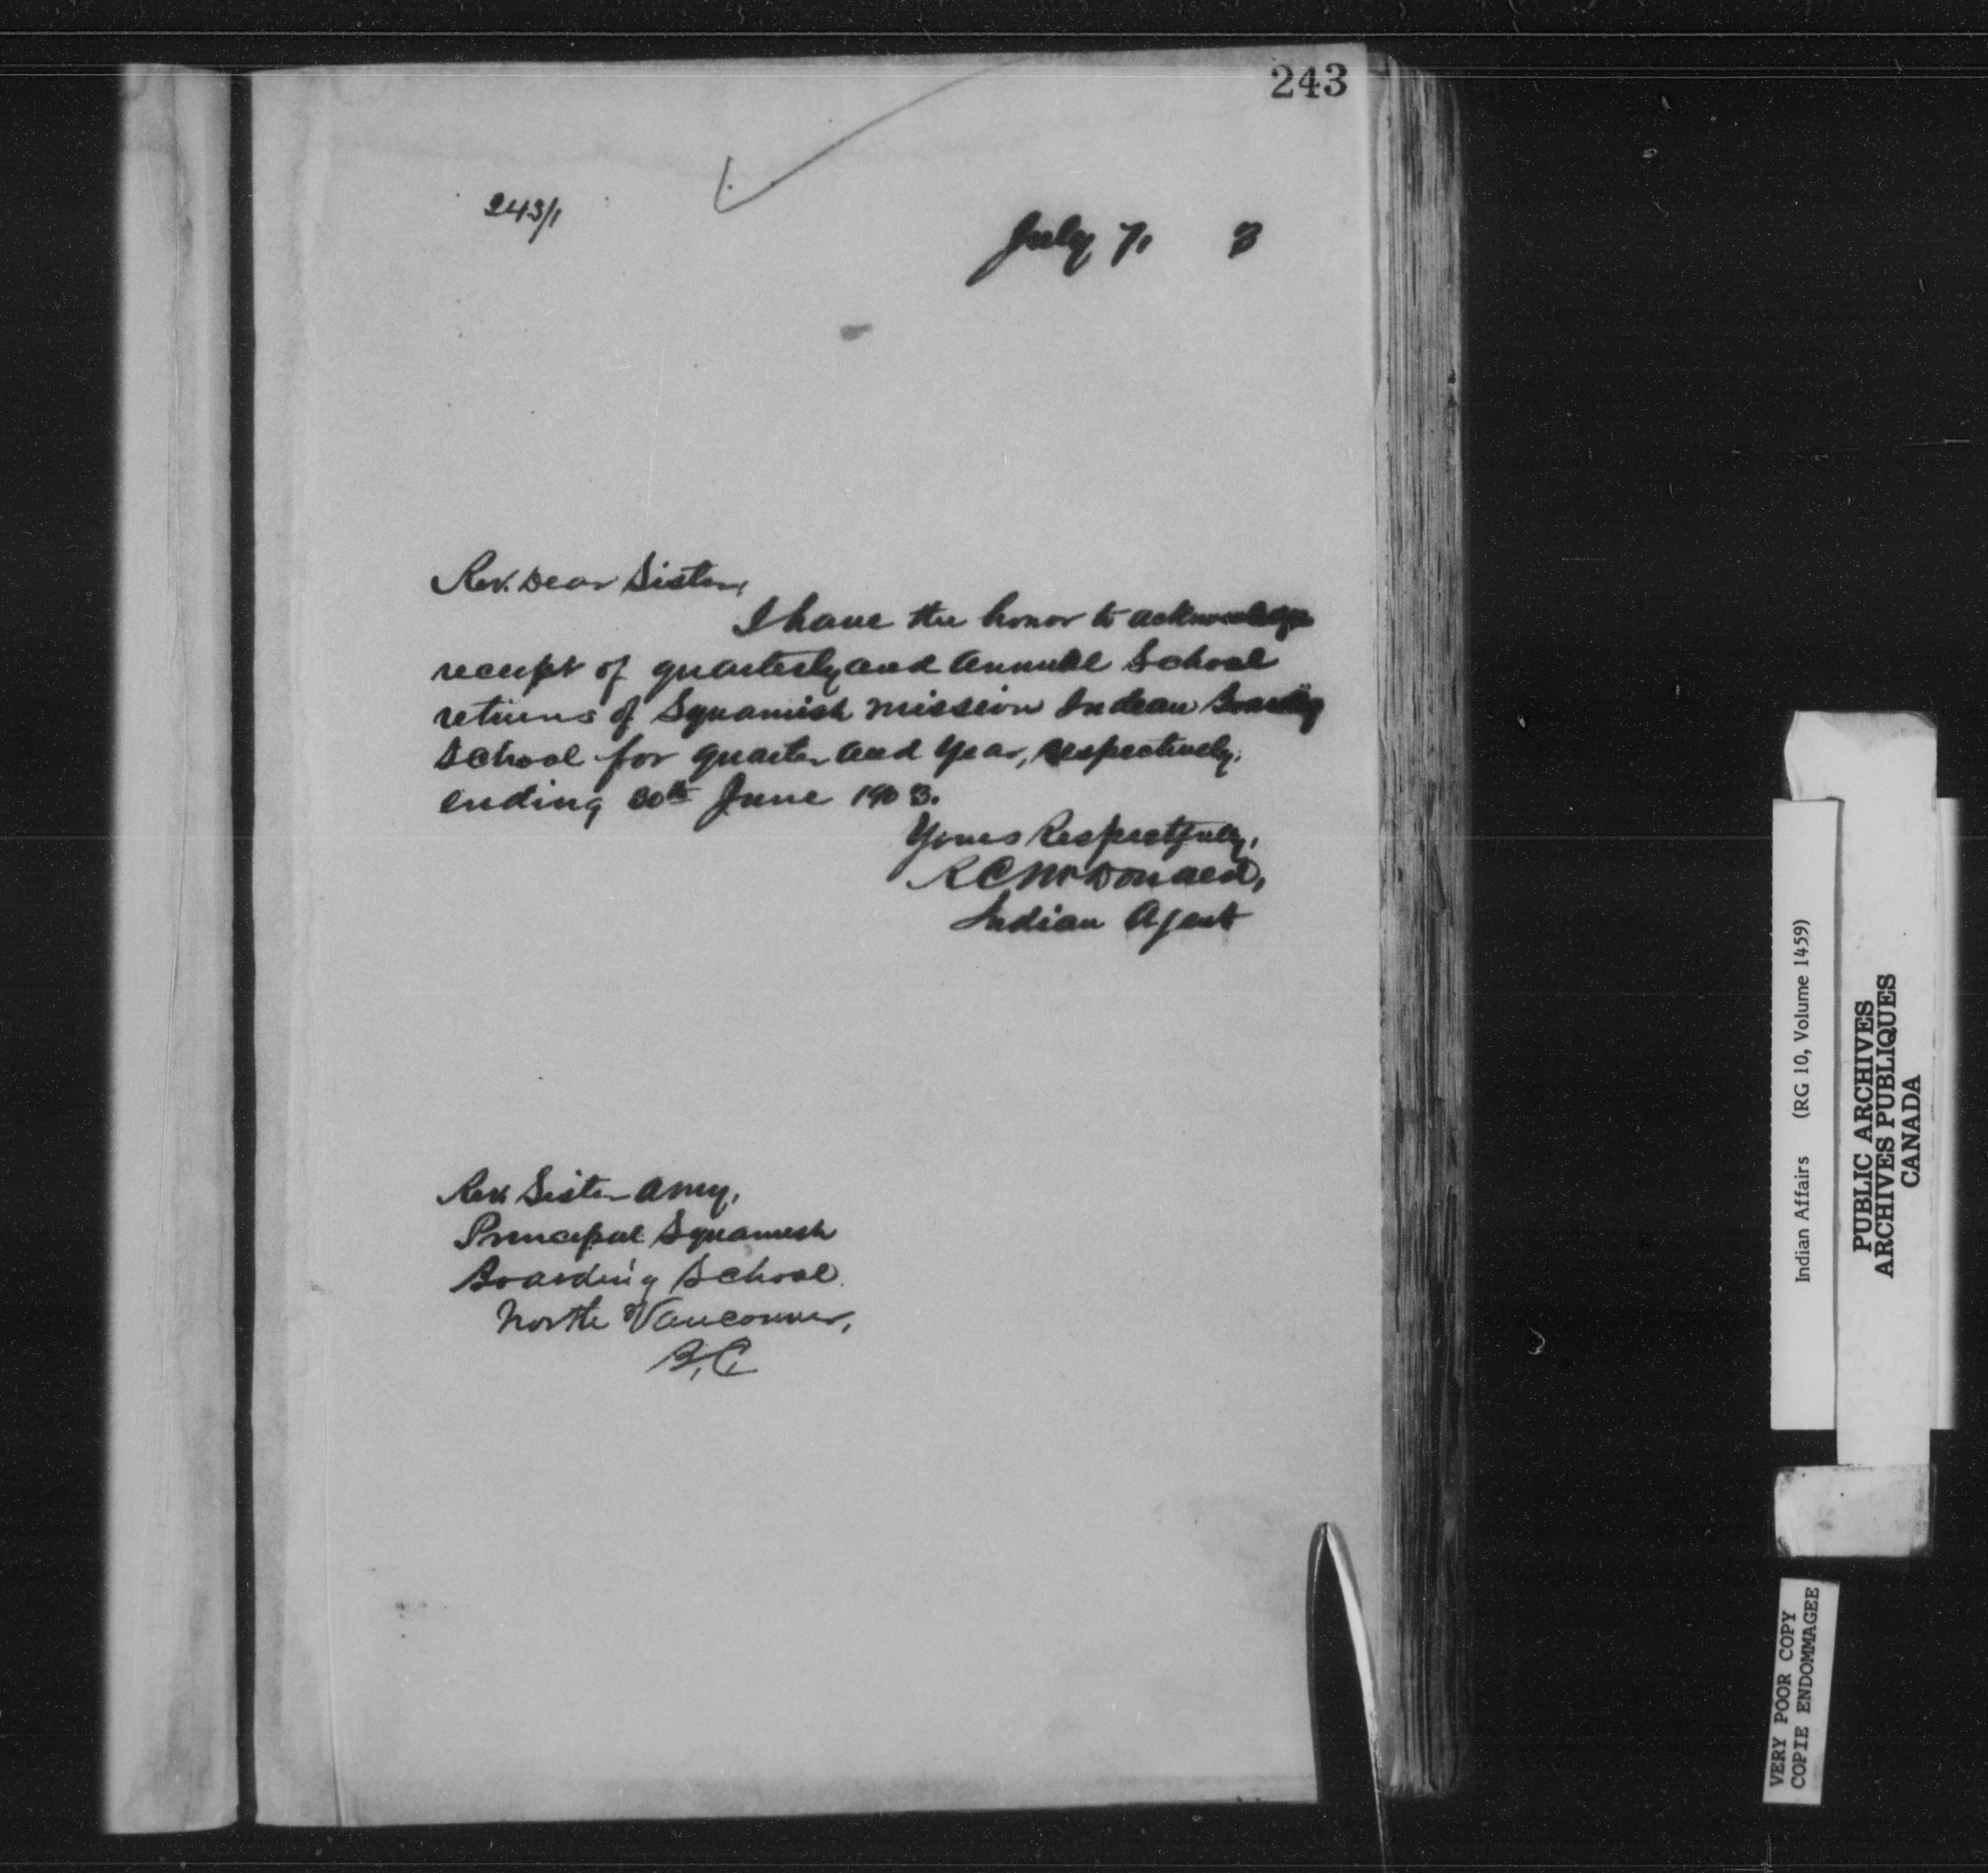 243
243/1
July 7, 3
Rev. Dear Sister,
I have the honor to acknowledge
receipt of quarterly and annual School
returns of Squamish mission Indian Boarding
School for quarter and year, respectively,
ending 30th June 1903.
Yours Respectfully,
R C McDonald,
Indian Agent
Rev Sister Amy,
Principal Squamish
Boarding School.
North Vancouver,
B.C.
Indian Affairs (RG 10, Volume 1459)
PUBLIC ARCHIVES
ARCHIVES PUBLIQUES
CANADA
VERY POOR COPY
COPIE ENDOMMAGEE